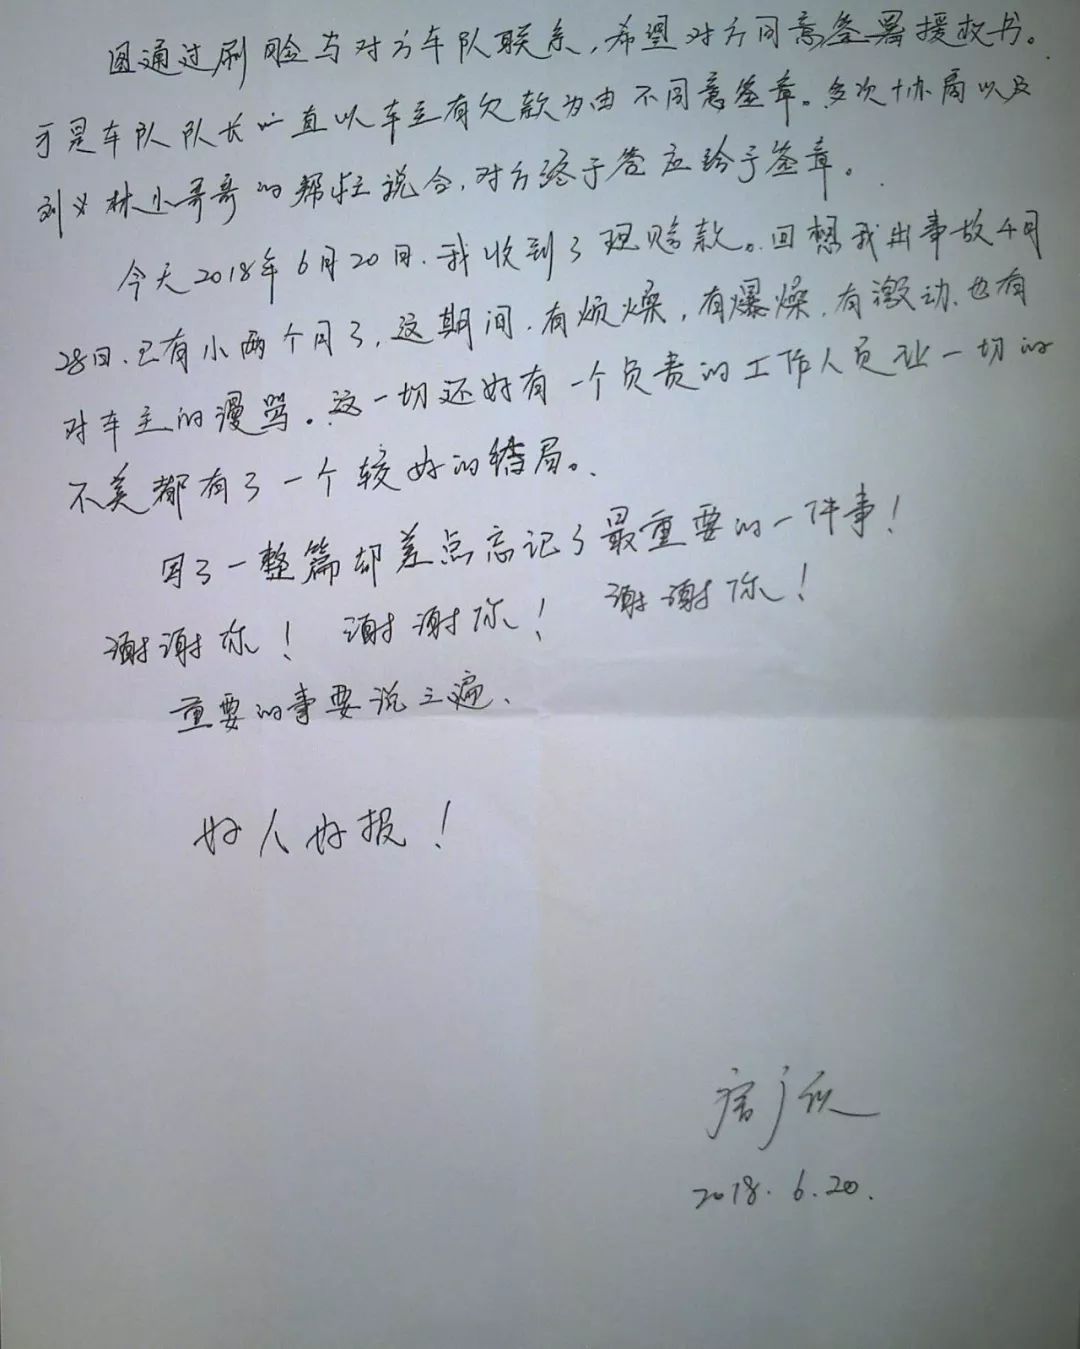 圆通过刷脸与对方车队联系，希望对方同意签署授权书。
于是车队队长一直以车主有欠款为由不同意签章。多次协商以及
刘义林小哥哥的帮忙说合，对方终于答应给予签章。
今天2018年6月20日、我收到了理赔款。回想我出事故4月
28日、已有小两个月了，这期间，有烦燥，有爆燥，有激动、也有
对车主的谩骂。这一切还好有一个负责的工作人员让一切的
不美都有了一个较好的结局。
写了一整篇却差点忘记了最重要的一件事！
谢谢你！ 谢谢你！ 谢谢你！
重要的事要说三遍、
好人好报！
2018.6.20.